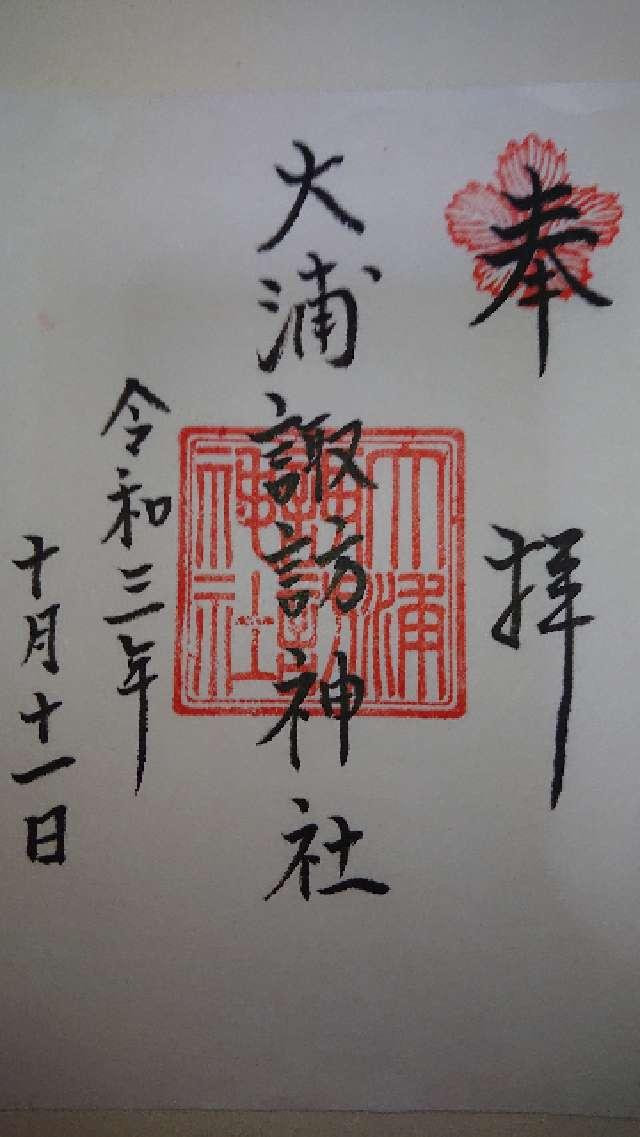 奉拝
大浦諏訪神社
大浦諏訪神社
令和三年
十月十一日